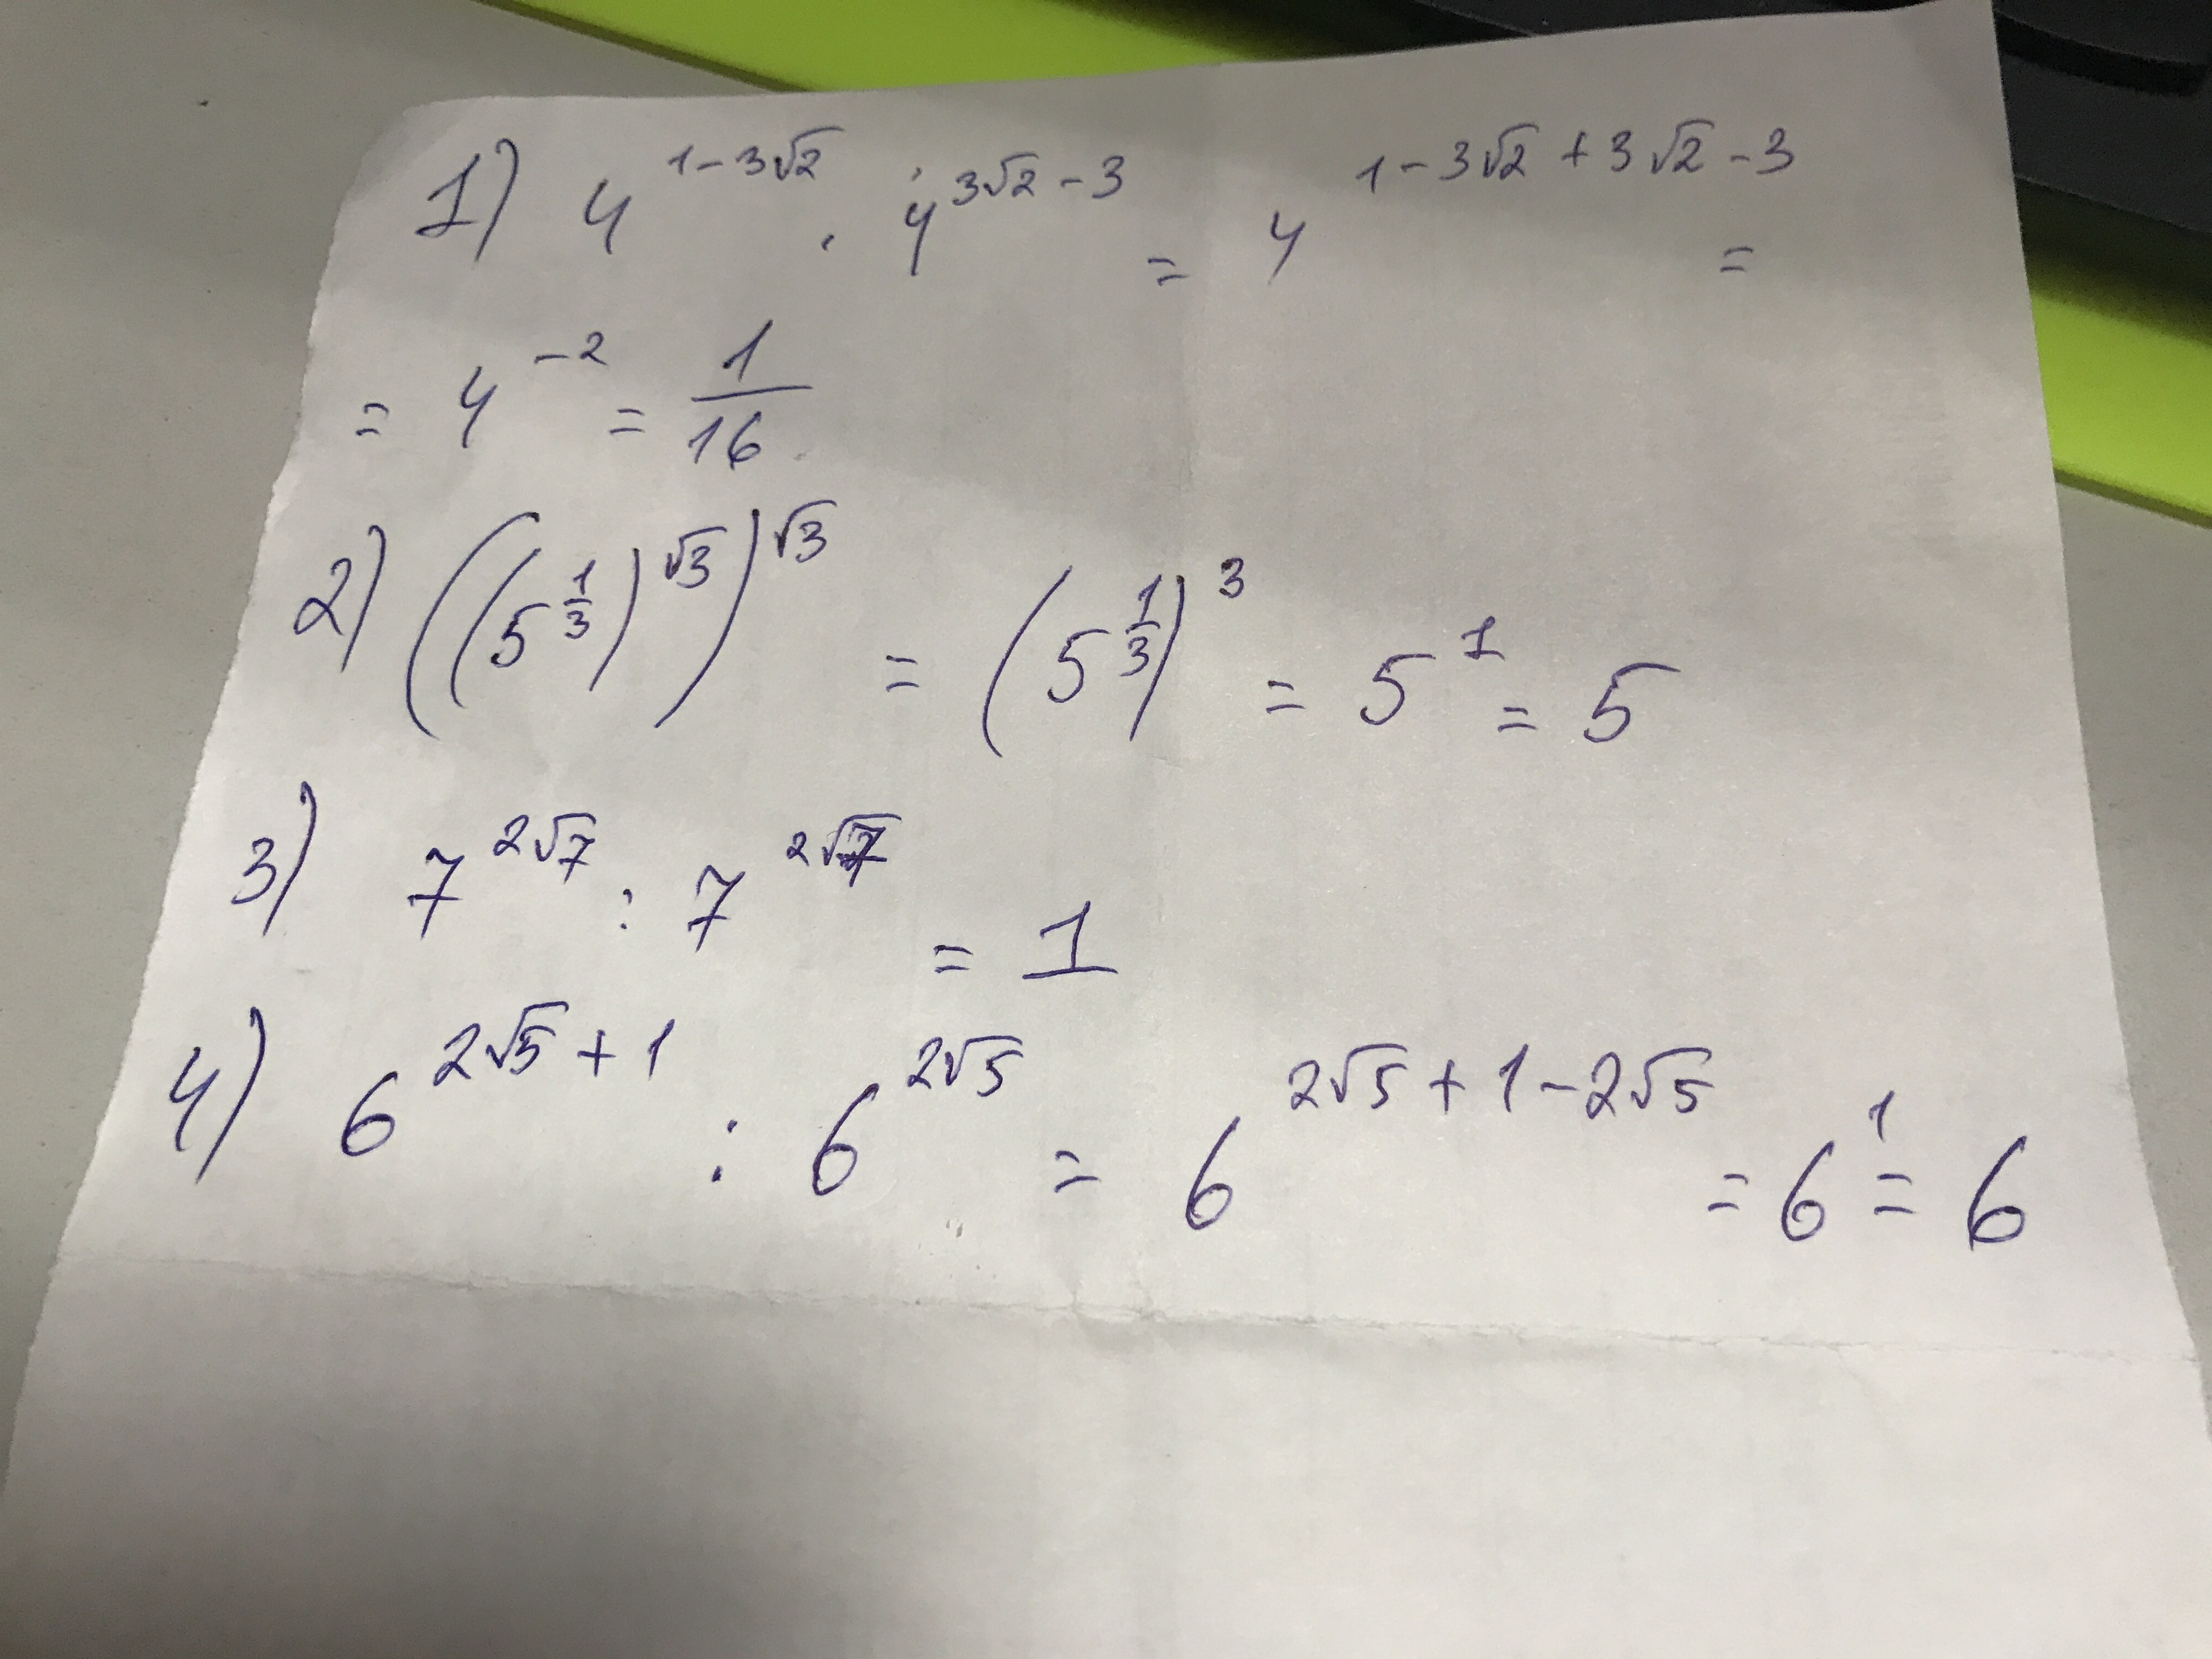 1) 4^{1-3√2} · 4^{3√2-3} = 4^{1-3√2+3√2-3} =
= 4^{-2} = \frac{1}{16}
2) ((5^{\frac{1}{3}})^{√3})^{√3} = (5^{\frac{1}{3}})^{3} = 5^{1} = 5
3) 7^{2√7} : 7^{2√7} = 1
4) 6^{2√5+1} : 6^{2√5} = 6^{2√5+1-2√5} = 6^{1} = 6